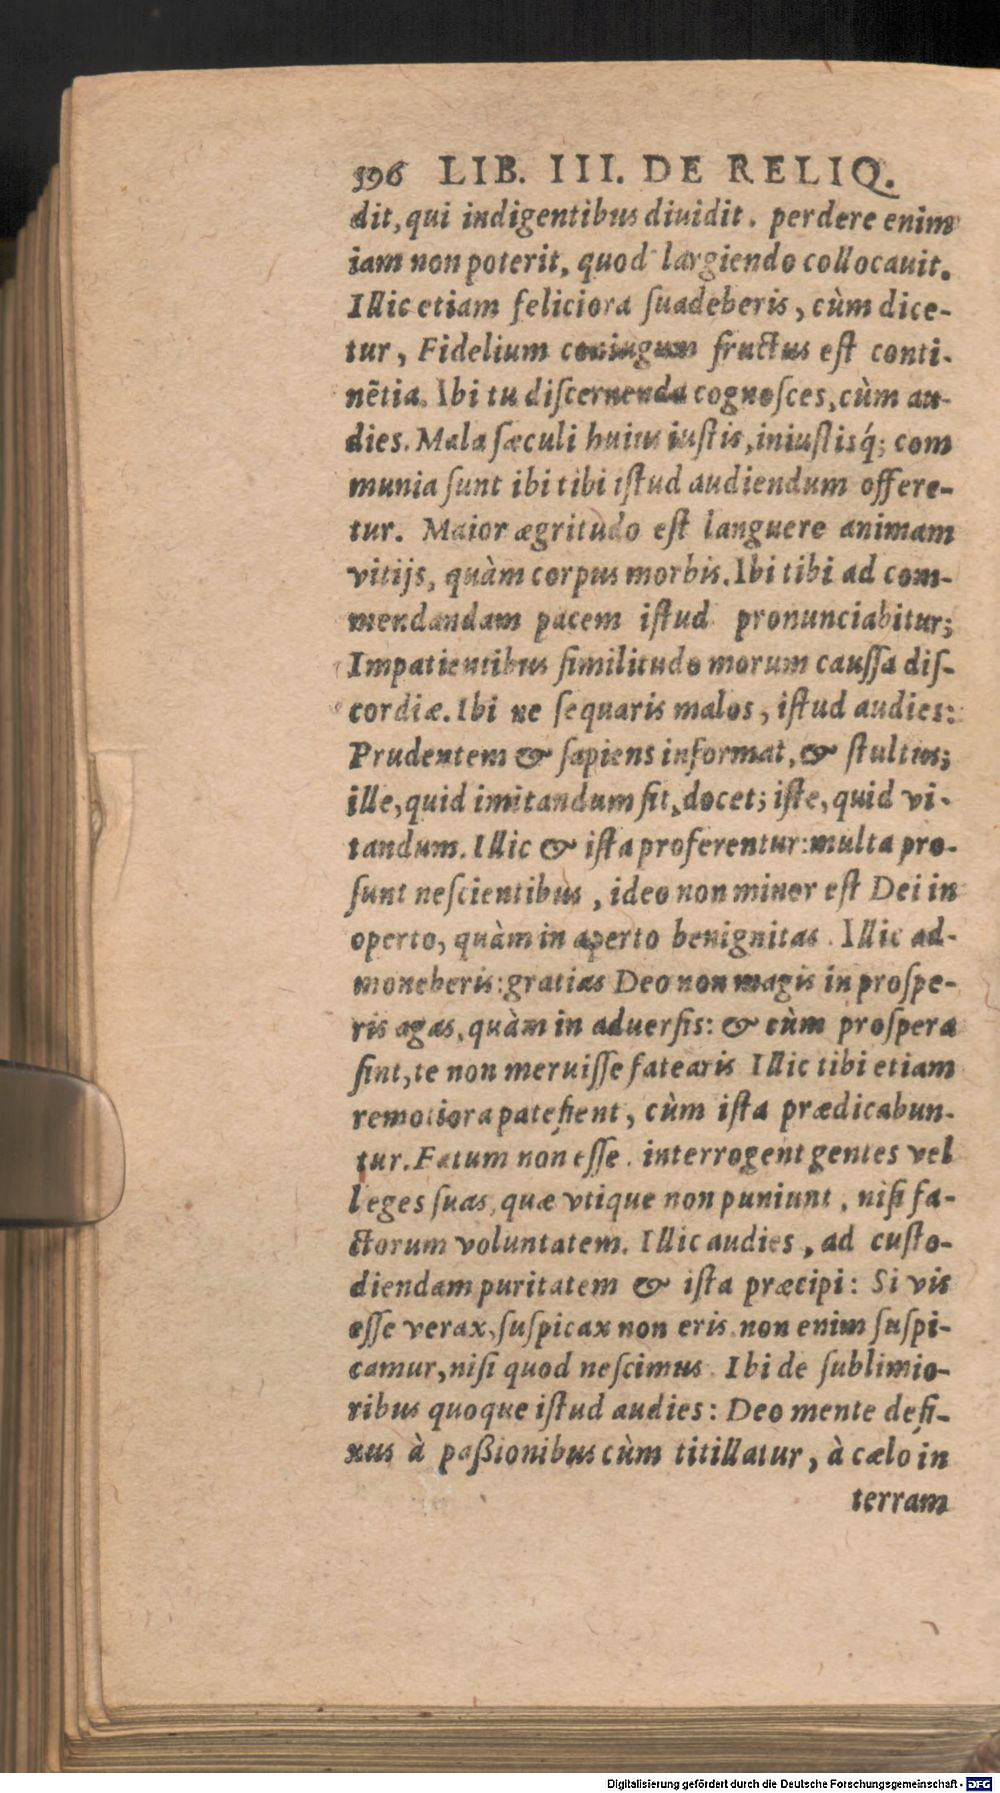 396 LIB. III. DE RELIQ.
dit, qui indigentibus diuidit. perdere enim
iam non poterit, quod largiendo collocauit.
Illic etiam feliciora ſuadeberis, cùm dice-
tur, Fidelium coniugum fructus eſt conti-
nẽtia. Ibi tu diſcernenda cognoſces, cùm au-
dies. Mala ſæculi huius iuſtis, iniuſtisq́; com
munia ſunt ibi tibi iſtud audiendum offere-
tur. Maior ægritudo eſt languere animam
vitijs, quàm corpus morbis. Ibi tibi ad com-
mendandam pacem iſtud pronunciabitur;
Impatientibus ſimilitudo morum cauſſa diſ-
cordiæ. Ibi ne ſequaris malos, iſtud audies:
Prudentem & ſapiens informat, & ſtultus;
ille, quid imitandum ſit, docet; iſte, quid vi-
tandum. Illic & iſta proferentur: multa pro-
ſunt neſcientibus, ideo non minor eſt Dei in
operto, quàm in aperto benignitas. Illic ad-
moneberis: gratias Deo non magis in proſpe-
ris agas, quàm in aduerſis: & cùm proſpera
ſint, te non meruiſſe fatearis Illic tibi etiam
remotiora patefient, cùm iſta prædicabun-
tur. Fatum non eſſe. interrogent gentes vel
leges ſuas, quæ vtique non puniunt, niſi fa-
ctorum voluntatem. Illic audies, ad cuſto-
diendam puritatem & iſta præcipi: Si vis
eſſe verax, ſuſpicax non eris. non enim ſuſpi-
camur, niſi quod neſcimus. Ibi de ſublimio-
ribus quoque iſtud audies: Deo mente defi-
xus à paßionibus cùm titillatur, à cælo in
terram
Digitalisierung gefördert durch die Deutsche Forschungsgemeinschaft - DFG